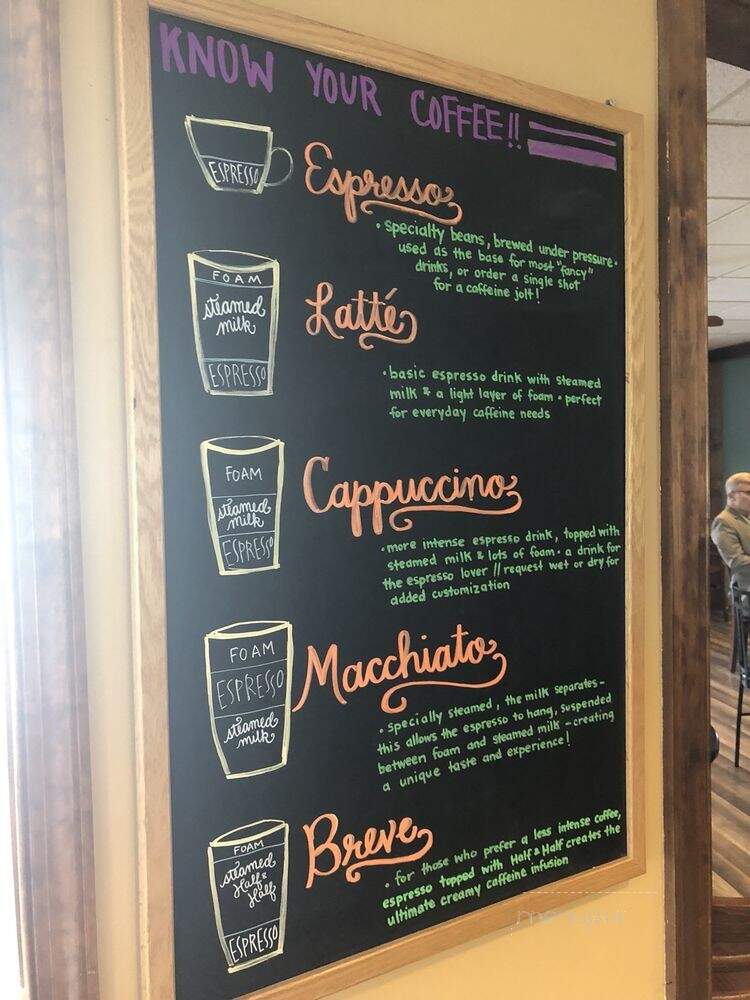 KNOW YOUR COFFEE!!
ESPRESSO
Espresso
• specialty beans, brewed under pressure •
used as the base for most "fancy"
drinks, or order a single shot
for a caffeine jolt!
FOAM
steamed
milk
ESPRESSO
Latté
• basic espresso drink with steamed
milk & a light layer of foam • perfect
for everyday caffeine needs
FOAM
steamed
milk
ESPRESSO
Cappuccino
• more intense espresso drink, topped with
steamed milk & lots of foam • a drink for
the espresso lover // request wet or dry for
added customization
FOAM
ESPRESSO
steamed
milk
Macchiato
• specially steamed, the milk separates -
this allows the espresso to hang, suspended
between foam and steamed milk - creating
a unique taste and experience!
FOAM
steamed
Half &
Half
ESPRESSO
Breve
• for those who prefer a less intense coffee,
espresso topped with Half & Half creates the
ultimate creamy caffeine infusion